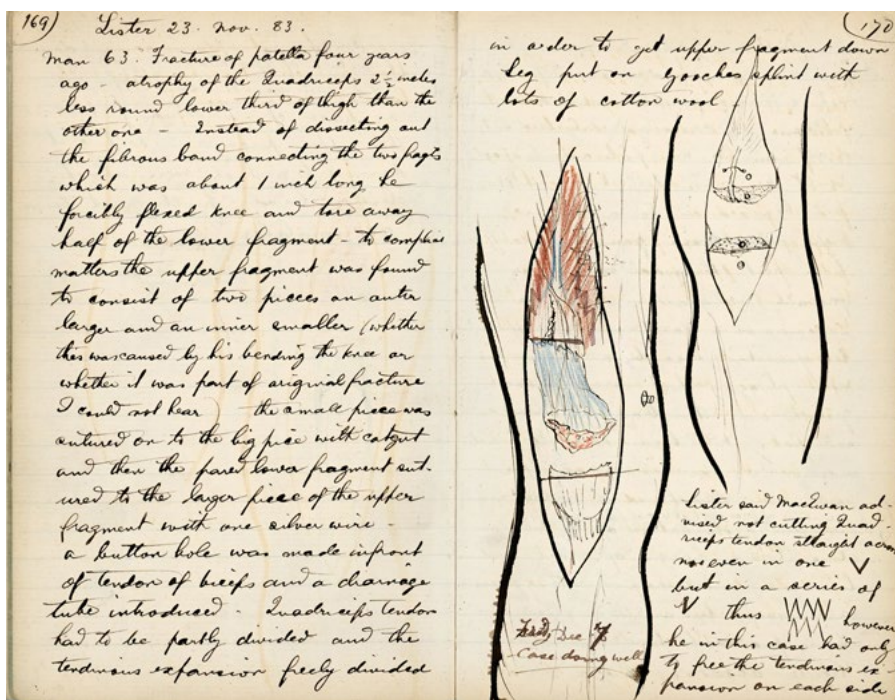 169
Lister 23. Nov. 83.
Man 63. Fracture of patella four years
ago - atrophy of the Quadriceps 2½ inches
less round lower third of thigh than the
other one - Instead of dissecting out
the fibrous band connecting the two fragts
which was about 1 inch long he
forcibly flexed knee and tore away
half of the lower fragment - to complicate
matters the upper fragment was found
to consist of two pieces an outer
larger and an inner smaller (whether
this was caused by his bending the knee or
whether it was part of original fracture
I could not hear) the small piece was
sutured on to the big piece with catgut
and then the pared lower fragment sut-
ured to the larger piece of the upper
fragment with one silver wire -
a button hole was made in front
of tendon of biceps and a drainage
tube introduced - Quadriceps tendon
had to be partly divided and the
tendinous expansion freely divided
170
in order to get upper fragment down
Leg put on Gooches splint with
lots of cotton wool -
Dec 7
Case doing well
Lister said MacEwan ad-
vised not cutting Quad-
riceps tendon straight across
nor even in one V
but in a series of
V thus VVV however
he in this case had only
to free the tendinous ex-
pansion on each side